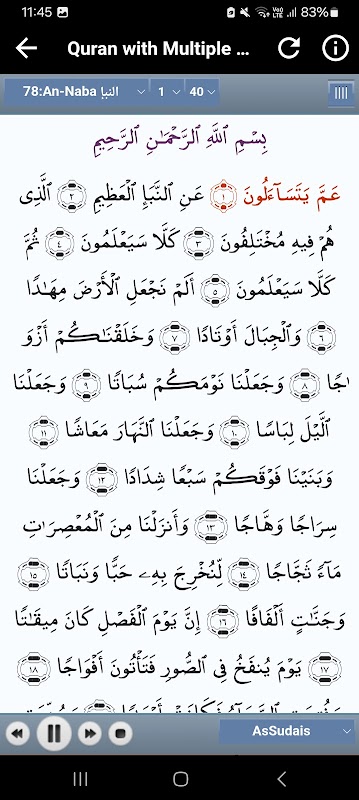 11:45 83%
Quran with Multiple ...
78:An-Naba النبإ 1 40
بِسْمِ ٱللَّهِ ٱلرَّحْمَـٰنِ ٱلرَّحِيمِ
عَمَّ يَتَسَآءَلُونَ ١ عَنِ ٱلنَّبَإِ ٱلْعَظِيمِ ٢ ٱلَّذِى
هُمْ فِيهِ مُخْتَلِفُونَ ٣ كَلَّا سَيَعْلَمُونَ ٤ ثُمَّ
كَلَّا سَيَعْلَمُونَ ٥ أَلَمْ نَجْعَلِ ٱلْأَرْضَ مِهَـٰدًا
٦ وَٱلْجِبَالَ أَوْتَادًا ٧ وَخَلَقْنَـٰكُمْ أَزْوَ
ٰجًا ٨ وَجَعَلْنَا نَوْمَكُمْ سُبَاتًا ٩ وَجَعَلْنَا
ٱلَّيْلَ لِبَاسًا ١٠ وَجَعَلْنَا ٱلنَّهَارَ مَعَاشًا ١١
وَبَنَيْنَا فَوْقَكُمْ سَبْعًا شِدَادًا ١٢ وَجَعَلْنَا
سِرَاجًا وَهَّاجًا ١٣ وَأَنزَلْنَا مِنَ ٱلْمُعْصِرَٰتِ
مَآءً ثَجَّاجًا ١٤ لِّنُخْرِجَ بِهِۦ حَبًّا وَنَبَاتًا ١٥
وَجَنَّـٰتٍ أَلْفَافًا ١٦ إِنَّ يَوْمَ ٱلْفَصْلِ كَانَ مِيقَـٰتًا
١٧ يَوْمَ يُنفَخُ فِى ٱلصُّورِ فَتَأْتُونَ أَفْوَاجًا ١٨
AsSudais